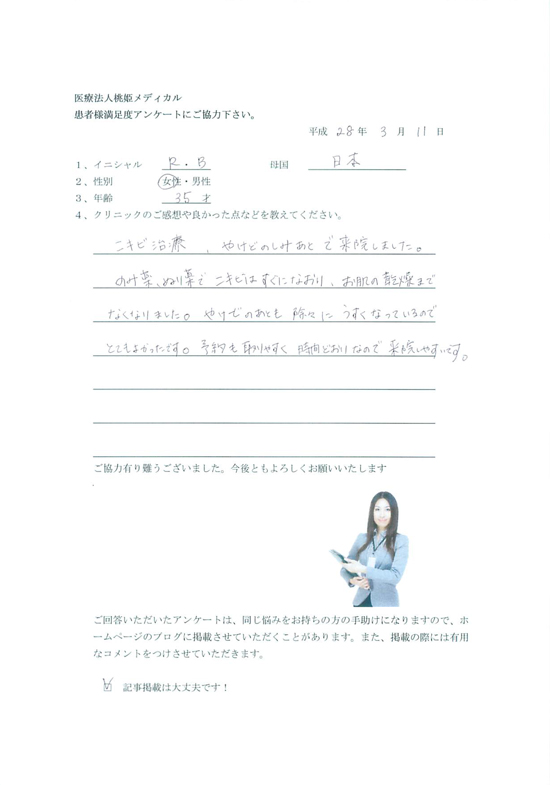 医療法人桃姫メディカル
患者様満足度アンケートにご協力下さい。
平成 28 年 3 月 11 日
1、イニシャル R・B 母国 日本
2、性別 女性・男性
3、年齢 35 才
4、クリニックのご感想や良かった点などを教えてください。
ニキビ治療 、やけどのしみあと で 来院しました。
のみ薬、ぬり薬で ニキビはすぐになおり、お肌の乾燥まで
なくなりました。 やけどのあとも 除々に うすくなっているので
とてもよかったです。予約も取りやすく 時間どおりなので 来院しやすいです。
ご協力有り難うございました。今後ともよろしくお願いいたします
ご回答いただいたアンケートは、同じ悩みをお持ちの方の手助けになりますので、ホ
ームページのブログに掲載させていただくことがあります。また、掲載の際には有用
なコメントをつけさせていただきます。
☑ 記事掲載は大丈夫です！